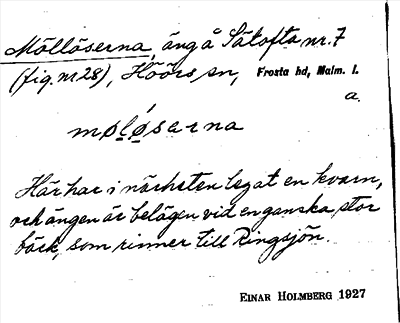 Mölläserna, äng å Sätofta nr. 7
(fig. nr. 28), Höörs sn, Frosta hd, Malm. l.
a.
møløserna
Här har i närheten legat en kvarn,
och ängen är belägen vid en ganska stor
bäck, som rinner till Ringsjön.
EINAR HOLMBERG 1927